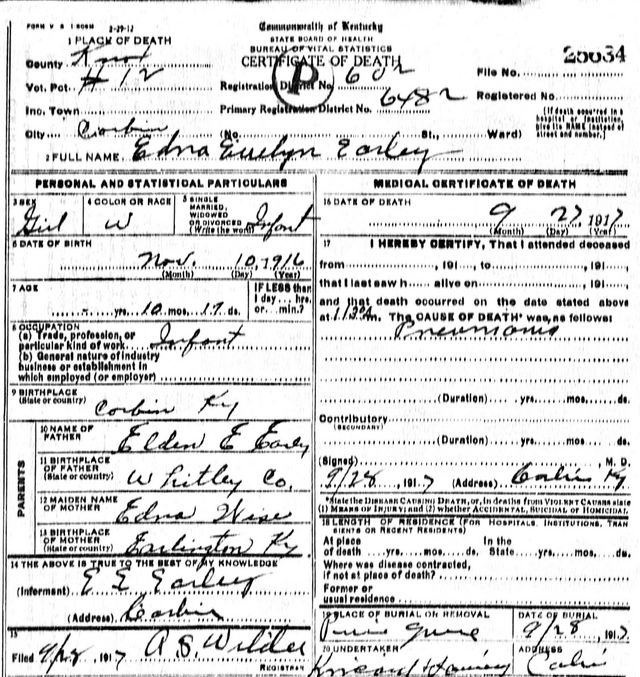 FORM V S 1 50M 2-29-12
Commonwealth of Kentucky
STATE BOARD OF HEALTH
BUREAU OF VITAL STATISTICS
CERTIFICATE OF DEATH
1 PLACE OF DEATH
County Knox
Vot. Pct. #12
Inc. Town
City Corbin (No. St., Ward)
P
Registration District No. 602
Primary Registration District No. 6482
File No. 25634
Registered No.
(If death occurred in a hospital or institution, give its NAME instead of street and number.)
2 FULL NAME Edna Evelyn Earley
PERSONAL AND STATISTICAL PARTICULARS
3 SEX Girl
4 COLOR OR RACE W
5 SINGLE MARRIED, WIDOWED OR DIVORCED (Write the word) Infant
6 DATE OF BIRTH
Nov. 10, 1916
(Month) (Day) (Year)
7 AGE
yrs. 10 mos. 17 ds.
IF LESS than 1 day... hrs. or... min.?
8 OCCUPATION
(a) Trade, profession, or particular kind of work Infant
(b) General nature of industry business or establishment in which employed (or employer)
9 BIRTHPLACE (State or country) Corbin Ky
PARENTS
10 NAME OF FATHER Elden E Early
11 BIRTHPLACE OF FATHER (State or country) Whitley Co.
12 MAIDEN NAME OF MOTHER Edna Wise
13 BIRTHPLACE OF MOTHER (State or country) Earlington Ky
14 THE ABOVE IS TRUE TO THE BEST OF MY KNOWLEDGE
(Informant) E E Earley
(Address) Corbin
15
Filed 9/28 1917 A. S. Wilder
REGISTRAR
MEDICAL CERTIFICATE OF DEATH
16 DATE OF DEATH
9 27 1917
(Month) (Day) (Year)
17 I HEREBY CERTIFY, That I attended deceased
from 191 , to 191 ,
that I last saw h alive on 191 ,
and that death occurred on the date stated above
at 1:30 m. The CAUSE OF DEATH* was, as follows:
Pneumonia
(Duration) yrs. mos. ds.
Contributory (SECONDARY)
(Duration) yrs. mos. ds.
(Signed) M. D.
9/28, 1917 (Address) Corbin Ky
*State the DISEASE CAUSING DEATH, or, in deaths from VIOLENT CAUSES state (1) MEANS OF INJURY; and (2) whether ACCIDENTAL, SUICIDAL or HOMICIDAL.
18 LENGTH OF RESIDENCE (FOR HOSPITALS, INSTITUTIONS, TRANSIENTS OR RECENT RESIDENTS)
At place of death yrs. mos. ds. In the State yrs. mos. ds.
Where was disease contracted, if not at place of death?
Former or usual residence
19 PLACE OF BURIAL OR REMOVAL
DATE OF BURIAL
9/28, 1917
20 UNDERTAKER
ADDRESS
Corbin